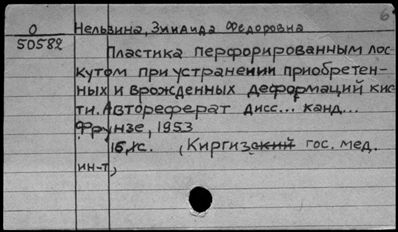 6
О Нельзина, Зинаида Федоровна
50582
Пластика перфорированным лос-
кутом при устранении приобретен-
ных и врожденных деформаций кис-
ти. Автореферат дисс... канд...
Фрунзе, 1953
15 с. , Киргизский гос. мед.
ин-т,